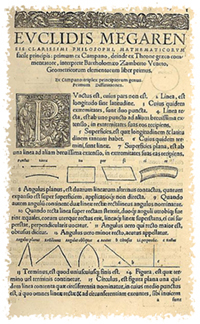 EVCLIDIS MEGAREN
SIS CLARISSIMI PHILOSOPHI, MATHEMATICORVM
facile principis: primum ex Campano, deinde ex Theone græco com
mentatore, interprete Bartholomæo Zamberto Veneto,
Geometricorum elementorum liber primus.
Ex Campano triplex principiorum genus.
Primum Diffinitiones.
PVnctus est, cuius pars non est. 2 Linea, est
longitudo sine latitudine. 3 Cuius quidem
extremitates, sunt duo puncta. 4 Linea re-
cta, est ab uno puncto ad alium breuissima ex
tensio, in extremitates suas eos recipiens.
5 Superficies, est quæ longitudinem & latitu
dinem tantum habet. 6 Cuius quidem ter
mini, sunt lineæ. 7 Superficies plana, est ab
una linea ad aliam breuissima extensio, in extremitates suas eas recipiens.
8 Angulus planus, est duarum linearum alternus contactus, quarum
expansio est super superficiem, applicatioq́; non directa. 9 Quando
autem angulum continent duæ lineæ rectæ rectilineus angulus nominatur.
10 Quando recta linea super rectam steterit, duoq́; anguli utrobiq; fue
rint æquales, eorum uterq; rectus erit. Lineaq́; lineæ superstans, ei cui su-
perstat, perpendicularis uocatur. 11 Angulus uero qui recto maior est,
obtusus dicitur. 12 Angulus uero minor recto, acutus appellatur.
13 Terminus, est quod uniuscuiusq; finis est. 14 Figura, est quæ ter
mino uel terminis continetur. 15 Circulus, est figura plana una qui-
dem linea contenta quæ circunferentia nominatur, in cuius medio punctus
est, à quo omnes lineæ rectæ ad circunferentiam exeuntes, sibi inuicem
sunt